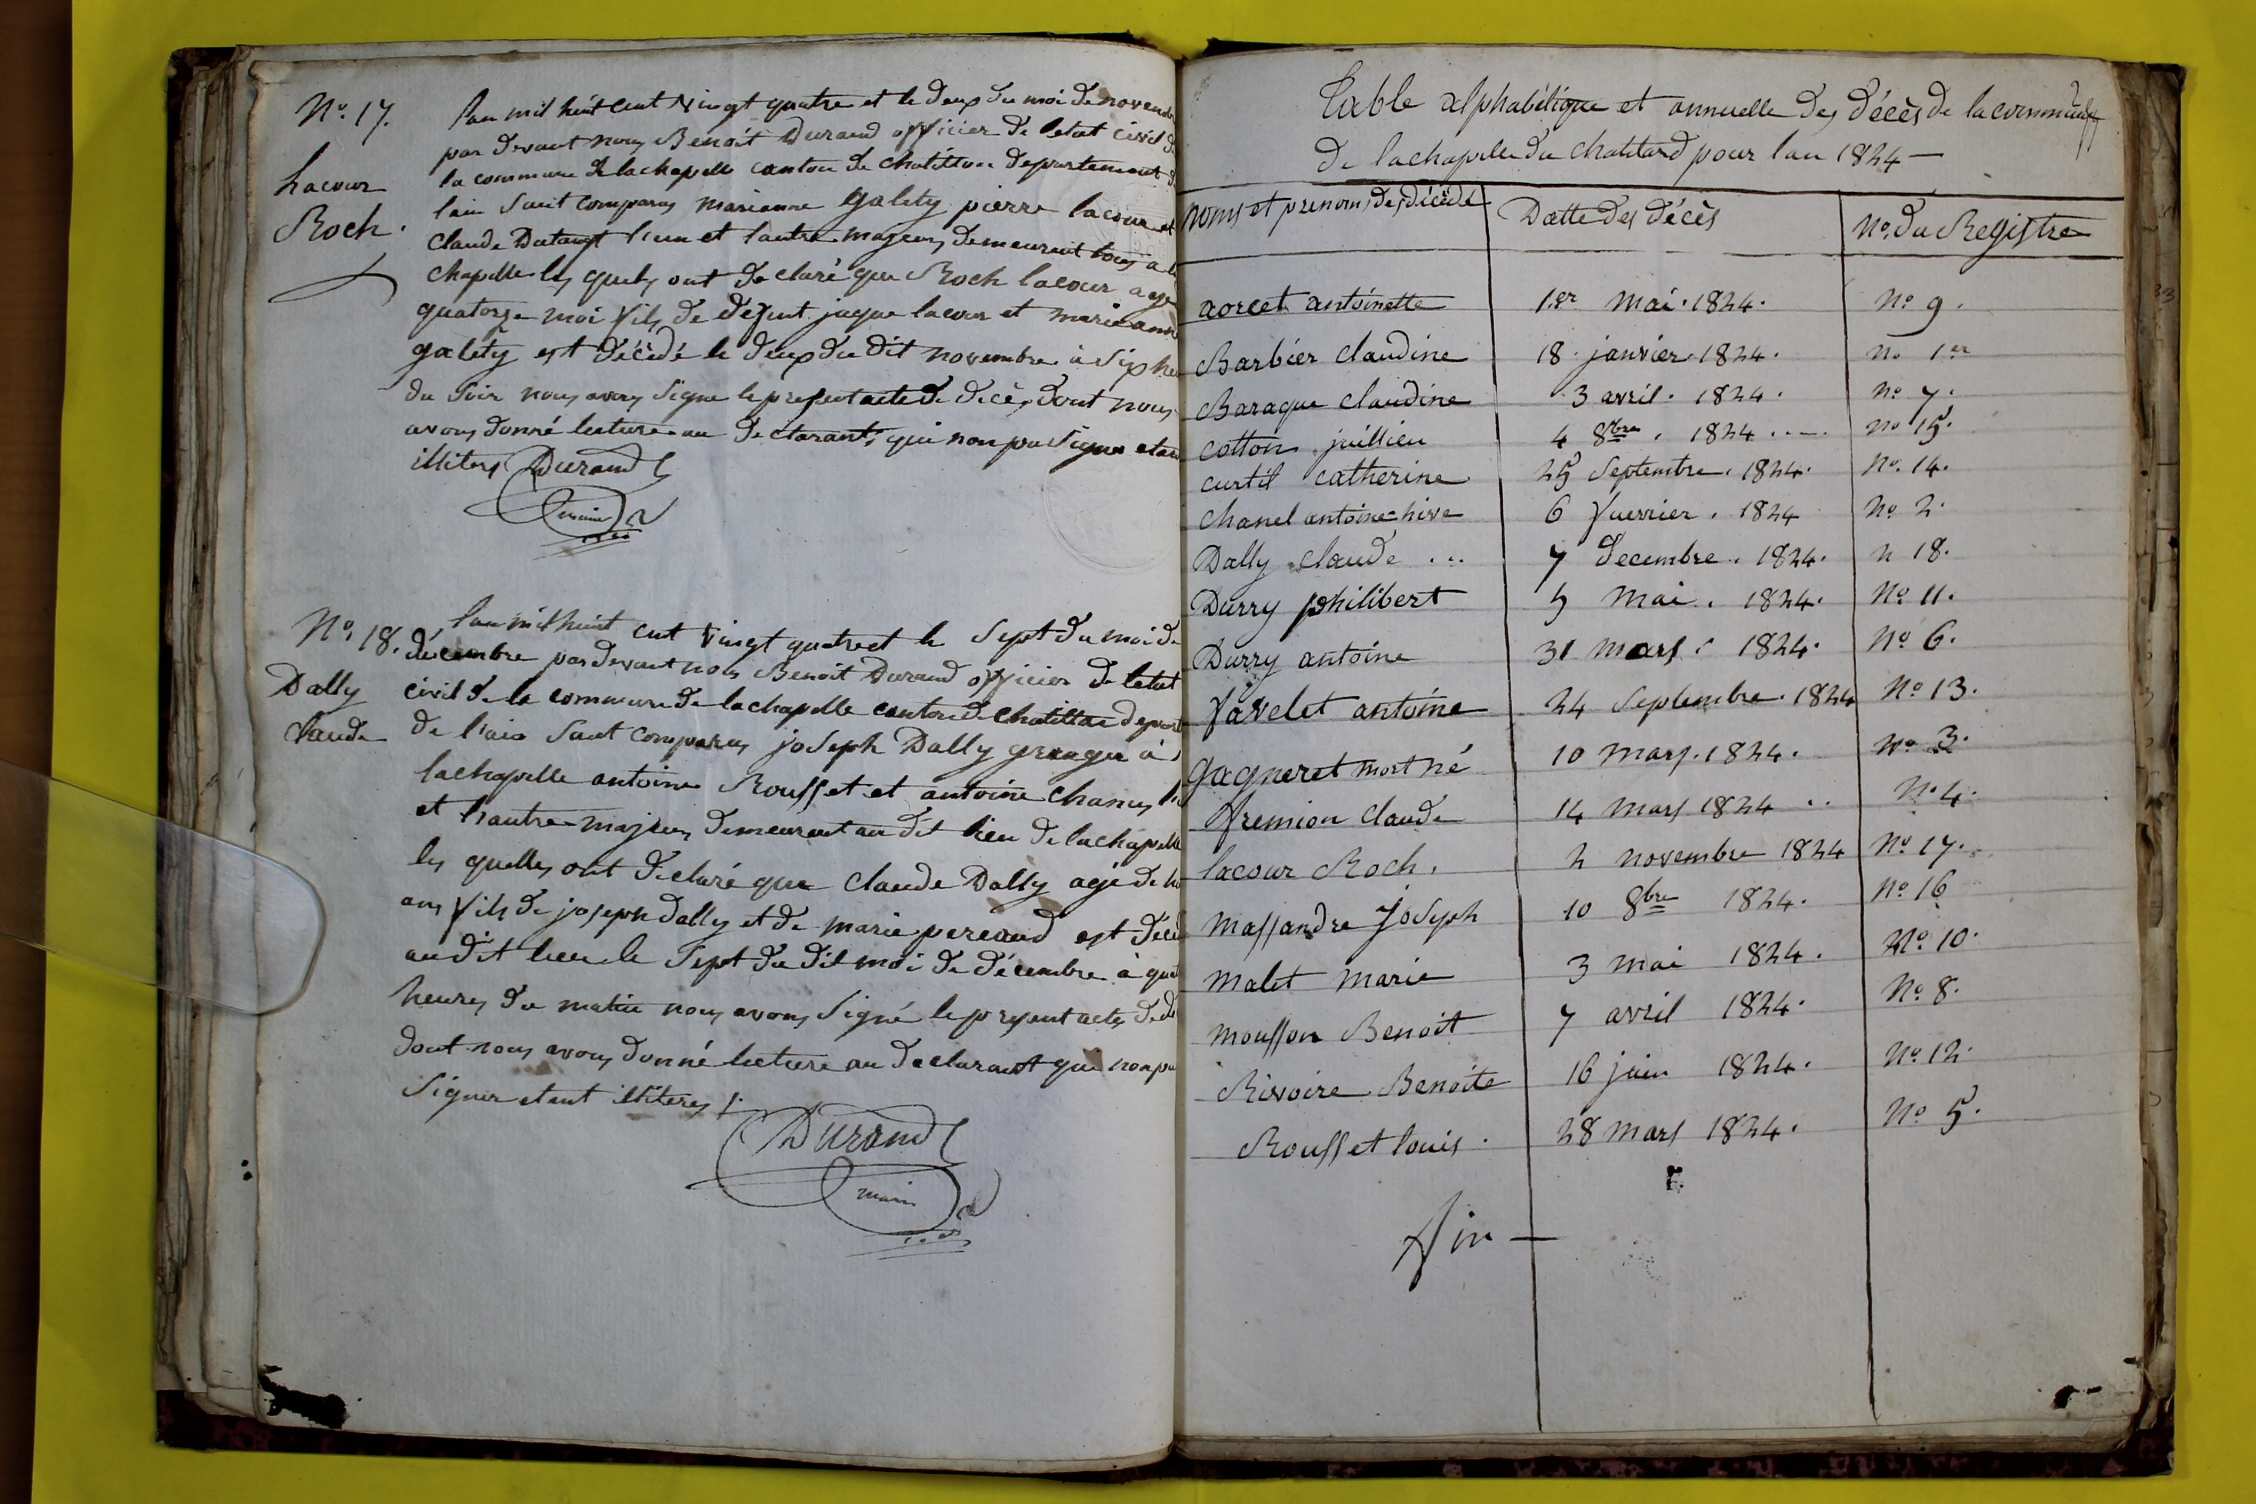 No. 17.
Lacour
Roch.
l'an mil huit cent vingt quatre et le deux du moi de novembr
par devant nous Benoit Durand officier de letat civil de
la commune de lachapelle canton de chatillon departement d
lain sont comparus marianne galety pierre lacour et
claude l'un et lautre majeurs demeurant tous a la
chapelle les quels ont declaré que Roch lacour age
quatorze moi fils de défunt jaque lacour et marie anne
galéty est décédé le deux du dit novembre à six heu
du soir nous avons signe le present acte de décès dont nous
avons donné lecture au declarants qui non pas signer etan
illiterés Durand
maire
No. 18.
Dally
claude
l'an mil huit cent vingt quatre et le sept du moi de
décembre par devant nous Benoit Durand officier de letat
civil de la commune de lachapelle canton de chatillon depart
de l'ain sont comparus joseph Dally granger à
lachapelle antoine Rousset et antoine l'u
et l'autre majeurs demeurant au dit lieu de lachapelle
les quelles ont declaré que claude Dally agé de
ans fils de joseph dally et de marie est décé
au dit lieu le sept du dit moi de décembre à
heures du matin nous avons signé le present actes de dé
dont nous avons donné lecture au declarant qui non pu
signer etant illiteres /.
Durand
maire
Table alphabétique et annuelle des décès de la commune
de lachapelle du chatelard pour lan 1824 —
noms et prenoms des décédé | Datte des décès | No. du Registre
aorcet antoinette | 1.er mai. 1824. | No 9.
Barbier claudine | 18. janvier. 1824. | no 1er
Baraque claudine | 3 avril. 1824. | no 7.
cotton juillien | 4 8bre. 1824.... | no 15.
curtil catherine | 25 septembre. 1824. | No. 14.
chanel antoine hive | 6 fuerrier. 1824 | No 2.
Dally claude ... | 7 decembre. 1824. | n 18.
Durry philibert | 5 mai. 1824. | No 11.
Durry antoine | 31 mars. 1824. | No 6.
favelet antoine | 24 septembre. 1824 | No 13.
gagneret mort né | 10 mars. 1824. | No 3.
fremion claude | 14 mars 1824 .. | No 4.
lacour Roch. | 2 novembre 1824 | No 17.
massandre joseph | 10 8bre 1824. | No 16
malet marie | 3 mai 1824. | No 10.
mousson Benoit | 7 avril 1824. | No 8.
Rivoire Benoite | 16 juin 1824. | No 12.
Rousset louis. | 28 mars 1824. | No 5.
fin —